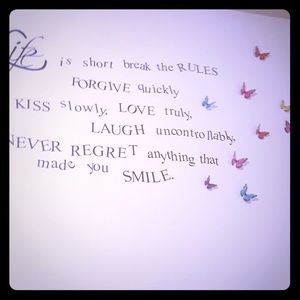 Life is short break the RULES
FORGIVE quickly
KISS slowly, LOVE truly,
LAUGH uncontrollably,
NEVER REGRET anything that
made you SMILE.